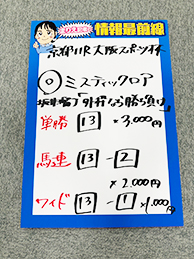 情報最前線
京都11R 大阪スポーツ杯
◎ミスティックロア
坂井「外枠なら勝ち負け」
単勝 13 × 3,000円
馬連 13 - 2
× 2,000円
ワイド 13 - 1 × 1,000円